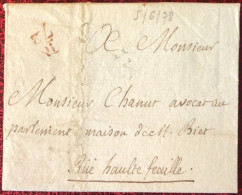 5/6/78
A Monsieur
Monsieur Chanut avocat au
parlement maison de Mr. Biet
Rüe haulte feuille.